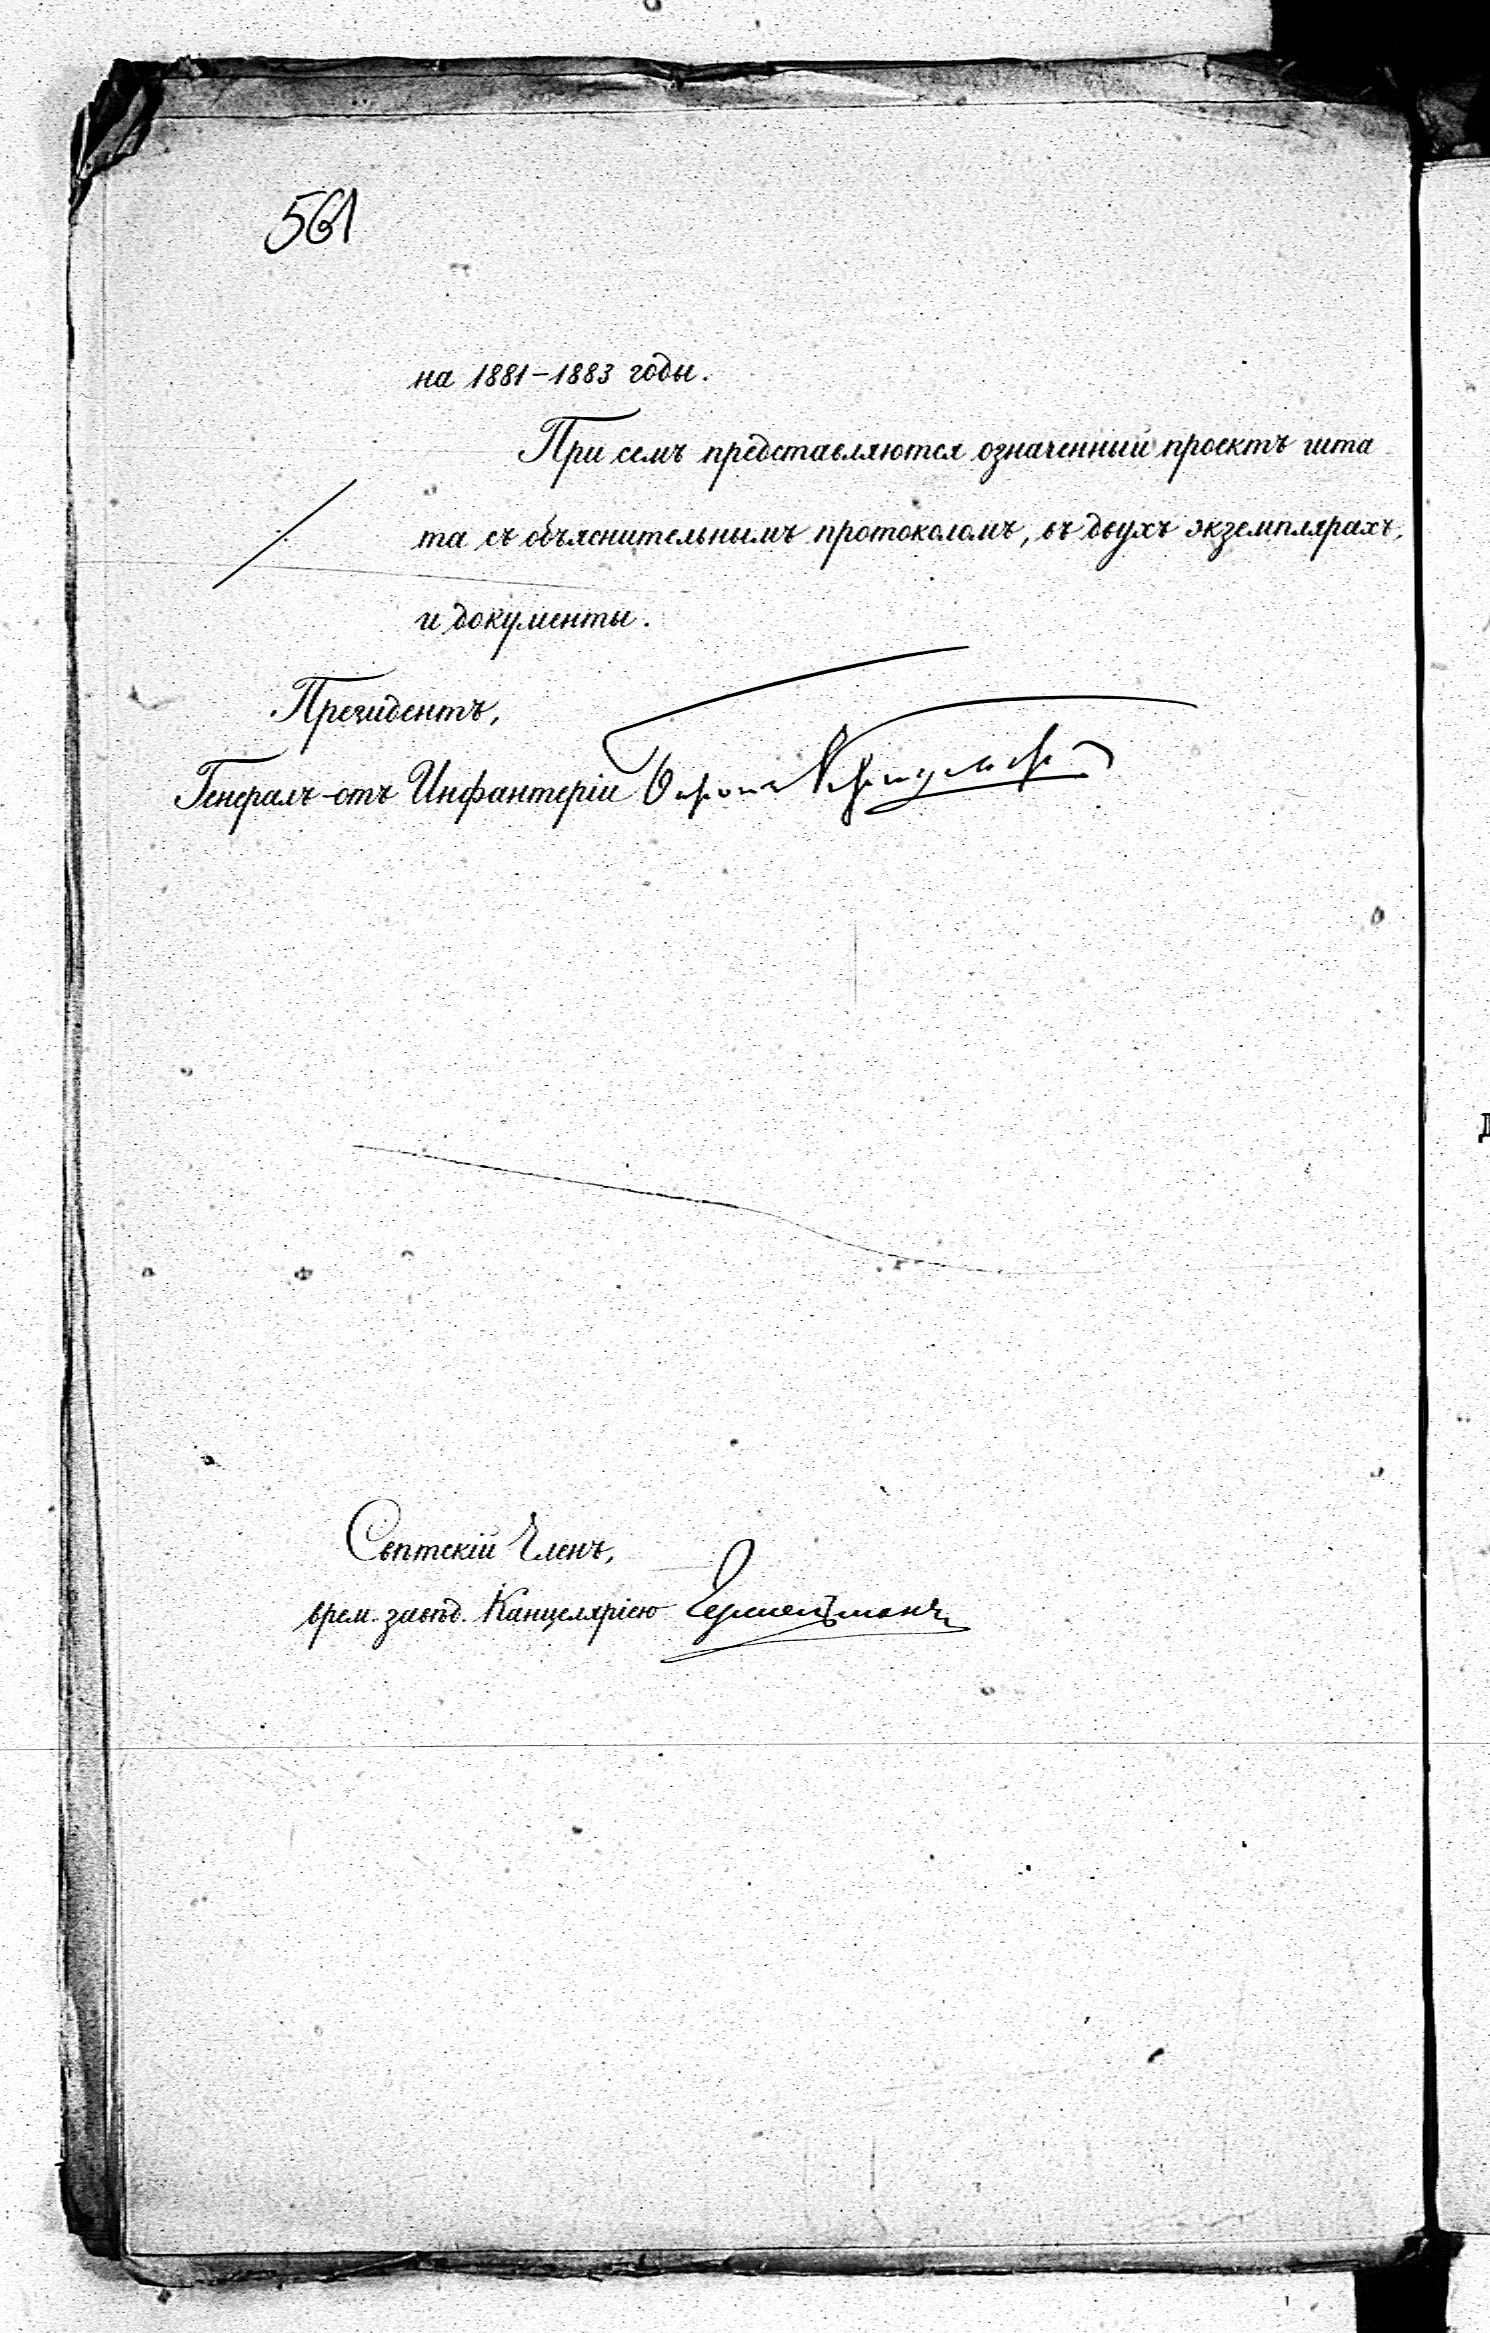 561
на 1881-1883 годы.
При семъ представляются означенный проектъ шта
та съ объяснительнымъ протоколомъ, въ двухъ экземплярахъ,
и документы.
Президентъ,
Генералъ-отъ Инфантеріи Баронъ
Свѣтскій Членъ,
врем. завѣд. Канцеляріею
Д